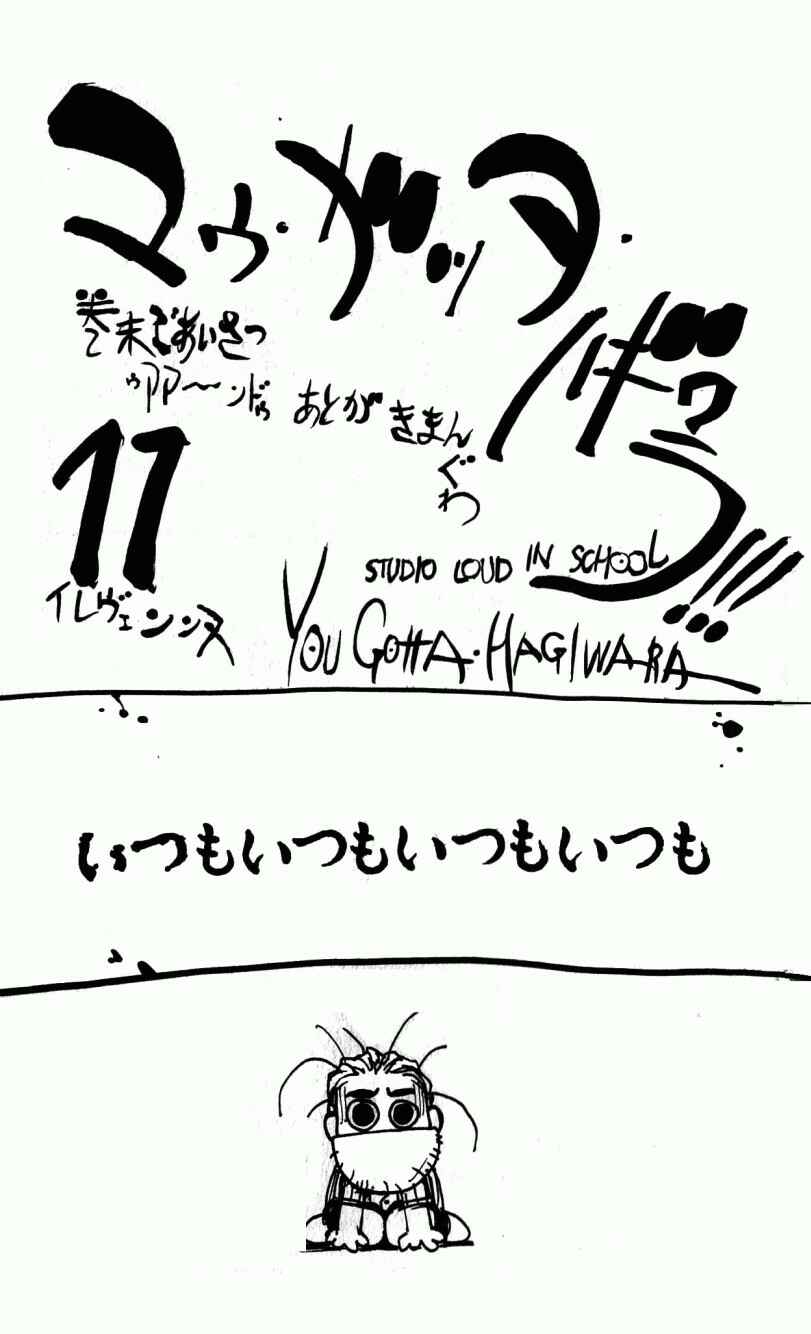 マゥ・ガッタ・
ハギワラ!!!
巻末ごあいさつ
ゥアアーンドゥ あとがきまんぐわ
11
イレヴェンンヌ
STUDIO LOUD IN SCHOOL
YOU GOTTA・HAGIWARA
いつもいつもいつもいつも